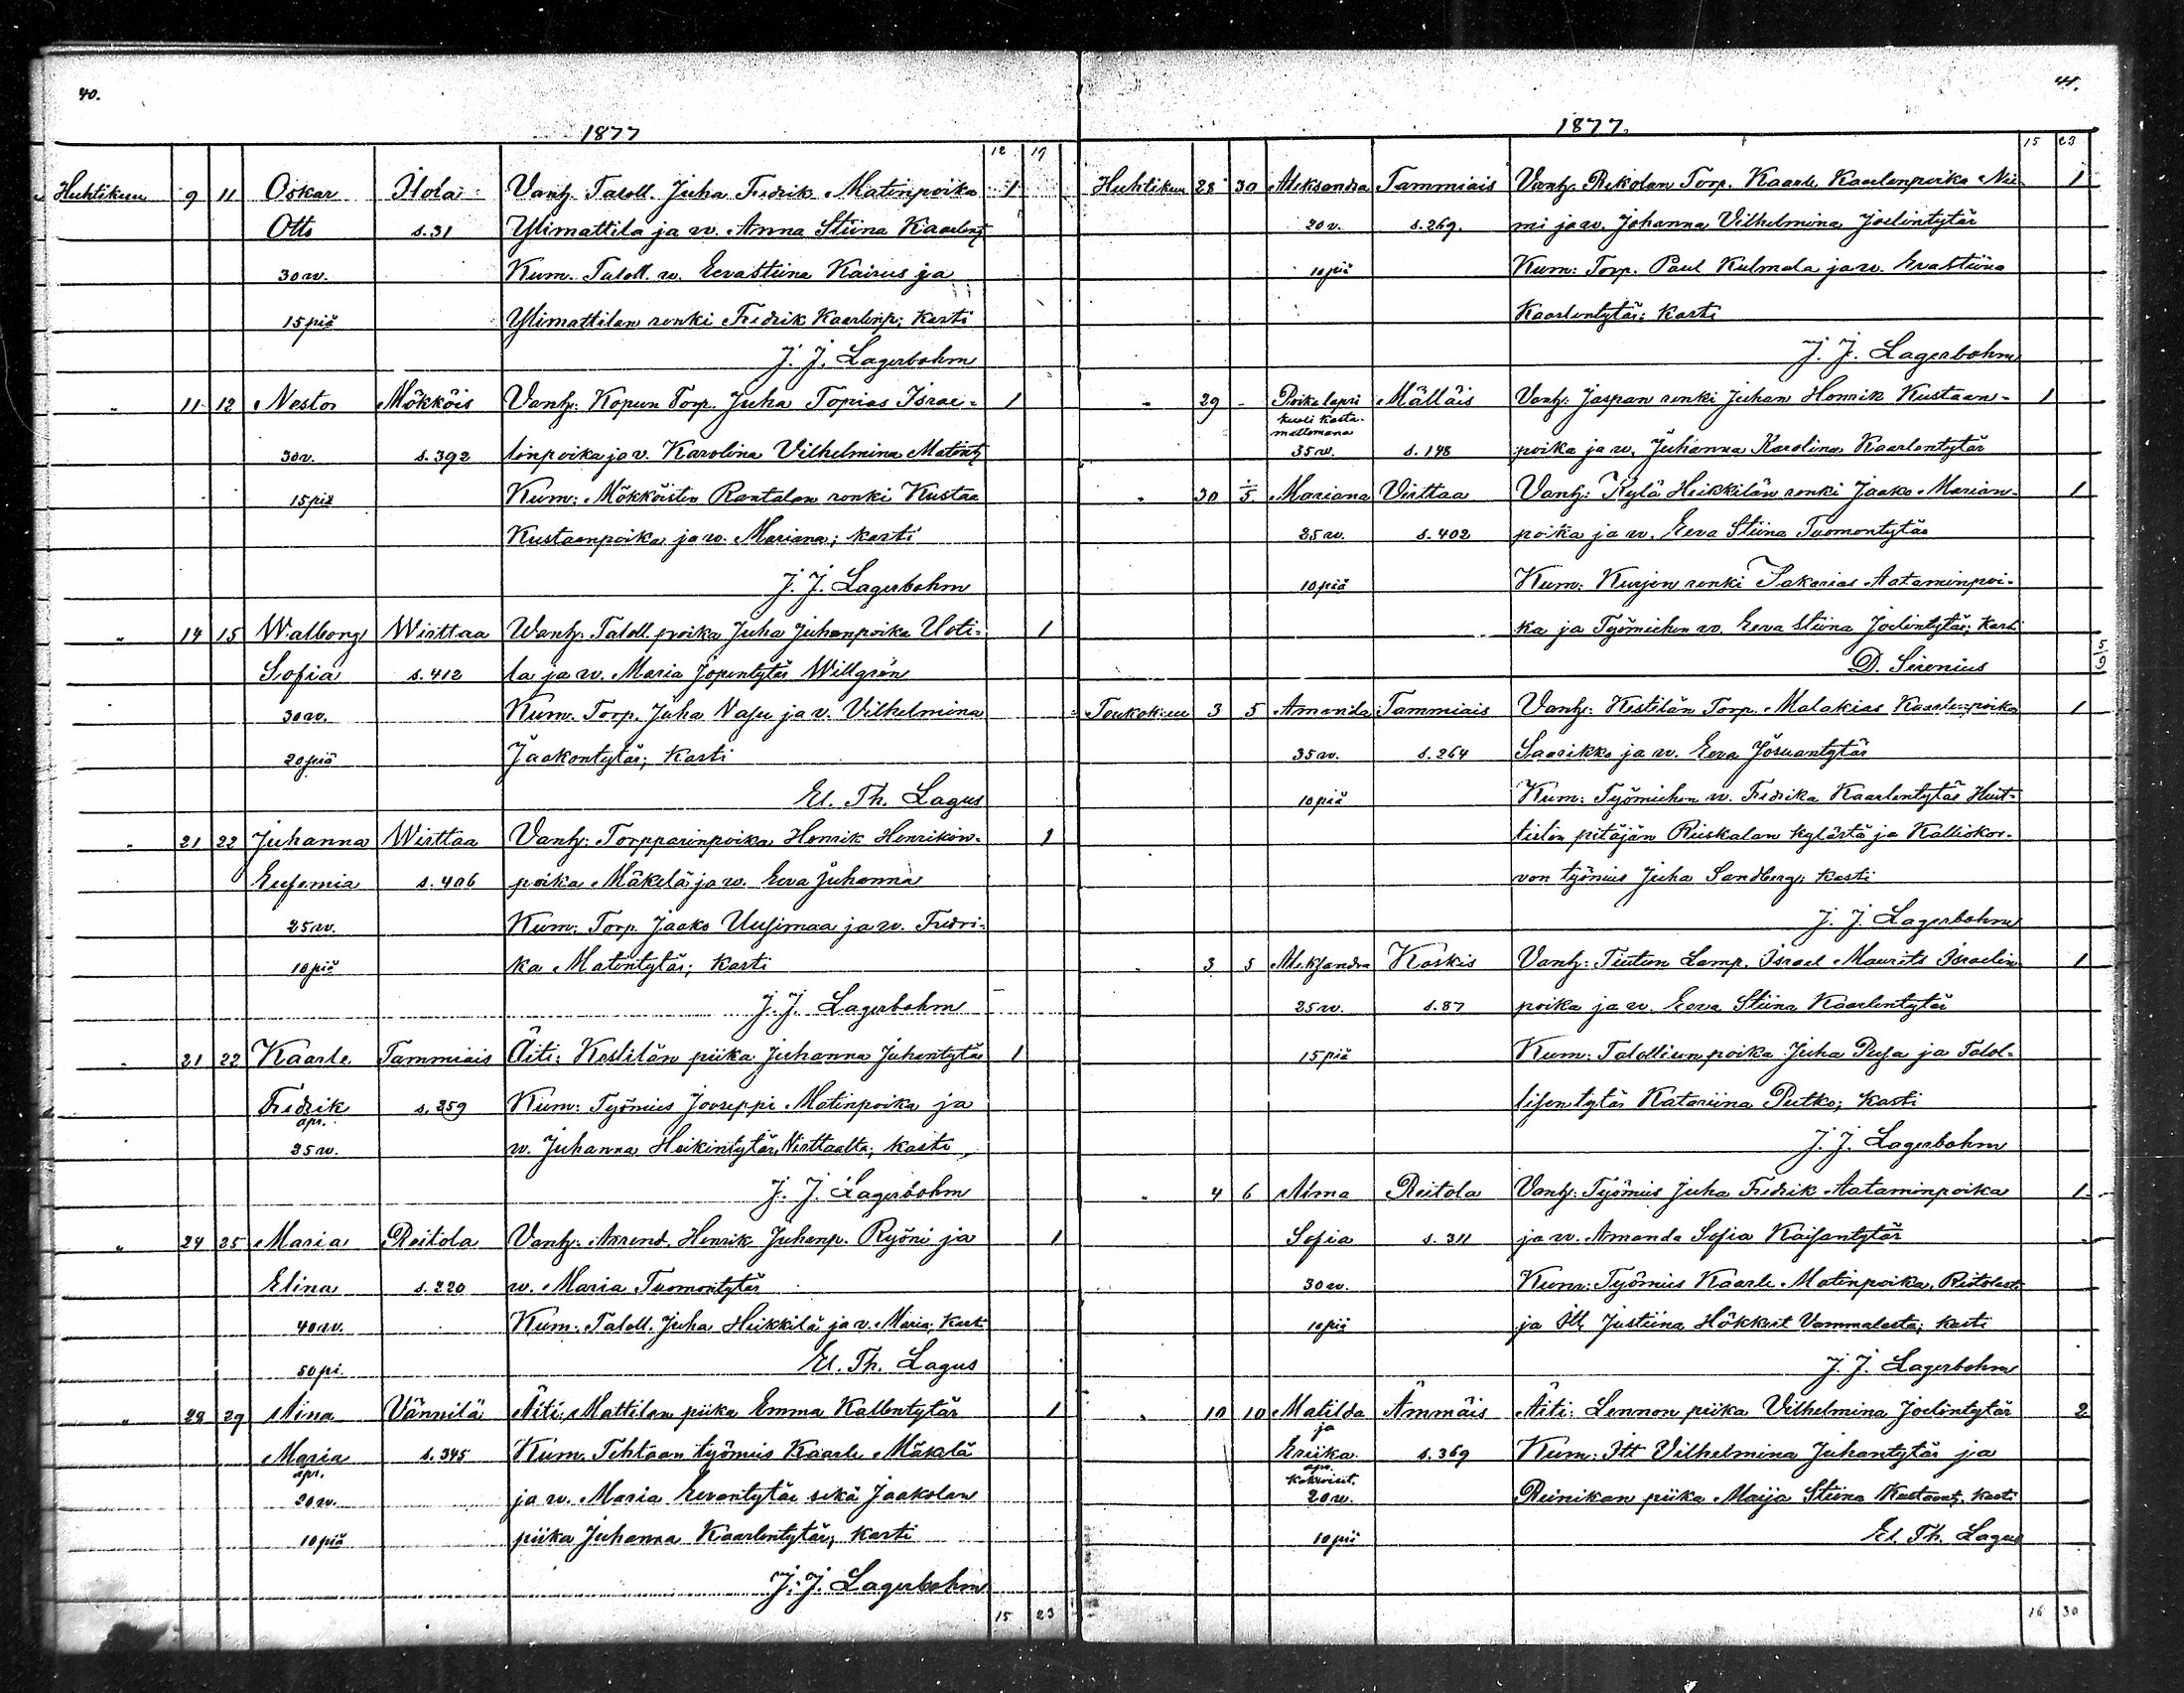 40.
1877
12 19
Huhtikuu 9 11 Oskar Ilola Vanh. Taloll. Juha Fredrik Matinpoika 1
Otto s.31 Ylimattila ja w. Anna Stiina Kaarlent
30 w. Kum. Taloll. w. Eevastiina Kairus ja
15 piä Ylimattilan renki Fredrik Kaarlenp; Kasti
J. J. Lagerbohm
" 11 12 Nestor Mökköis Vanh: Kopun Torp. Juha Topias Israe- 1
30 v. s.392 linpoika ja v. Karolina Vilhelmina Matint
15 piä Kum: Mökköisten Rantalan renki Kustaa
Kustaanpoika ja w. Mariana; kasti
J. J. Lagerbohm
" 14 15 Walborg Wirttaa Wanh: Taloll. poika Juha Juhanpoika Uoti- 1
Sofia s.412 la ja w. Maria Jopentytär Willgrén
30 w. Kum. Torp. Juha Vasu ja v. Vilhelmina
20 piä Jaakontytär; Kasti
El. Th. Lagus
" 21 22 Juhanna Wirttaa Vanh: Torpparinpoika Henrik Henrikin- 1
Eufemia s.406 poika Mäkelä ja w. Eeva Juhanna
25 w. Kum: Torp. Jaako Uusimaa ja w. Fredri-
10 piä ka Matintytär; Kasti
J. J. Lagerbohm
" 21 22 Kaarle Tammiais Äiti: Kestilän piika Juhanna Juhantytär 1
Fredrik s.259 Kum: Työmies Jooseppi Matinpoika ja
apr.
25 w. w. Juhanna Heikintytär, Virttaalta; kasti
J. J. Lagerbohm
" 24 25 Maria Reitola Vanh: Arrend. Henrik Juhanp. Ryöni ja 1
Elina s.220 w. Maria Tuomontytär
40 w. Kum: Taloll. Juha Heikkilä ja v. Maria; Kasti
50 pi. El. Th. Lagus
" 28 29 Aina Vännilä Äiti: Mattilan piika Emma Kallentytär 1
Maria s.345 Kum. Tehtaan työmies Kaarle Mäkelä
apr.
20 w. ja w. Maria Eevantytär sekä Jaakolan
10 piä piika Juhanna Kaarlentytär; kasti
J. J. Lagerbohm
15 23
41.
1877.
15 23
Huhtikuu 28 30 Aleksandra Tammiais Vanh: Rekolan Torp. Kaarle Kaarlenpoika Nie- 1
20 v. s.269. mi ja w. Johanna Vilhelmina Joelintytär
10 piä Kum: Torp. Paul Kulmala ja w. Evastiina
Kaarlentytär; kasti
J. J. Lagerbohm
" 29 - Poika lapsi Mälläis Vanh: Jaspan renki Juhan Henrik Kustaan- 1
kuoli kasta-
mattomana
35 w. s.198 poika ja w. Juhanna Karolina Kaarlentytär
" 30 1/5 Mariana Virttaa Vanh: Kylä Heikkilän renki Jaako Marian- 1
25 w. s.402 poika ja w. Eeva Stiina Tuomontytär
10 piä Kum: Kurjen renki Sakarias Aataminpoi-
ka ja Työmiehen w. Eeva Stiina Joelintytär; Kasti
D. Sirenius
Toukokuu 3 5 Amanda Tammiais Vanh: Kestilän Torp. Malakias Kaarlenpoika 1
35 w. s.264 Saarikko ja w. Eeva Josuantytär
10 piä Kum: Työmiehen w. Fredrika Kaarlentytär Huit-
tisten pitäjän Riiskalan kylästä ja Kalliokor-
von työmies Juha Sandberg; kasti
J. J. Lagerbohm
" 3 5 Aleksandra Koskis Vanh: Tiuton Lamp. Israel Maurits Israelin 1
25 w. s.87 poika ja w. Eeva Stiina Kaarlentytär
15 piä Kum: Talollisen poika Juha Pusa ja Talol-
lisen tytär Katariina Putko; Kasti
J. J. Lagerbohm
" 4 6 Alma Reitola Vanh: Työmies Juha Fredrik Aataminpoika 1
Sofia s.311 ja w. Amanda Sofia Kaisantytär
30 w. Kum: Työmies Kaarle Matinpoika, Reitolasta
10 piä ja Justiina Hökkert Vammalasta; kasti
J. J. Lagerbohm
" 10 10 Matilda Ämmäis Äiti: Lennon piika Vilhelmina Joelintytär 2
ja
Eriika s.369 Kum: Itt Vilhelmina Juhantytär ja
apr.
kaksoiset.
20 w. Reinikan piika Maija Stiina Kustaant, kasti
10 piä El. Th. Lagus
16 30